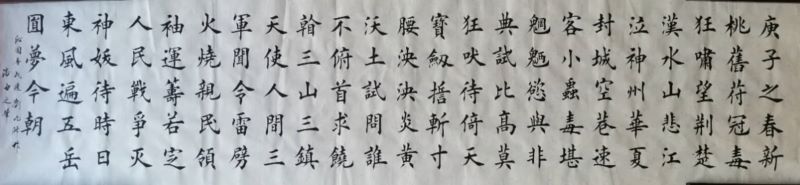 庚子之春新
桃舊苻冠毒
狂嘯望荆楚
漢水山悲江
泣神州華夏
封城空巷速
客小蟲毒堪
魍魎慾與非
典試比高莫
狂吠待倚天
寶劔捂斬寸
腰泱泱炎黄
沃土試問誰
不俯首求饒
三山三鎮
天使人間三
軍聞令雷劈
火燒親民領
袖運籌若定
人民戰爭灭
神妖待時日
東風遍五岳
圓夢今朝
沁园春抗疫